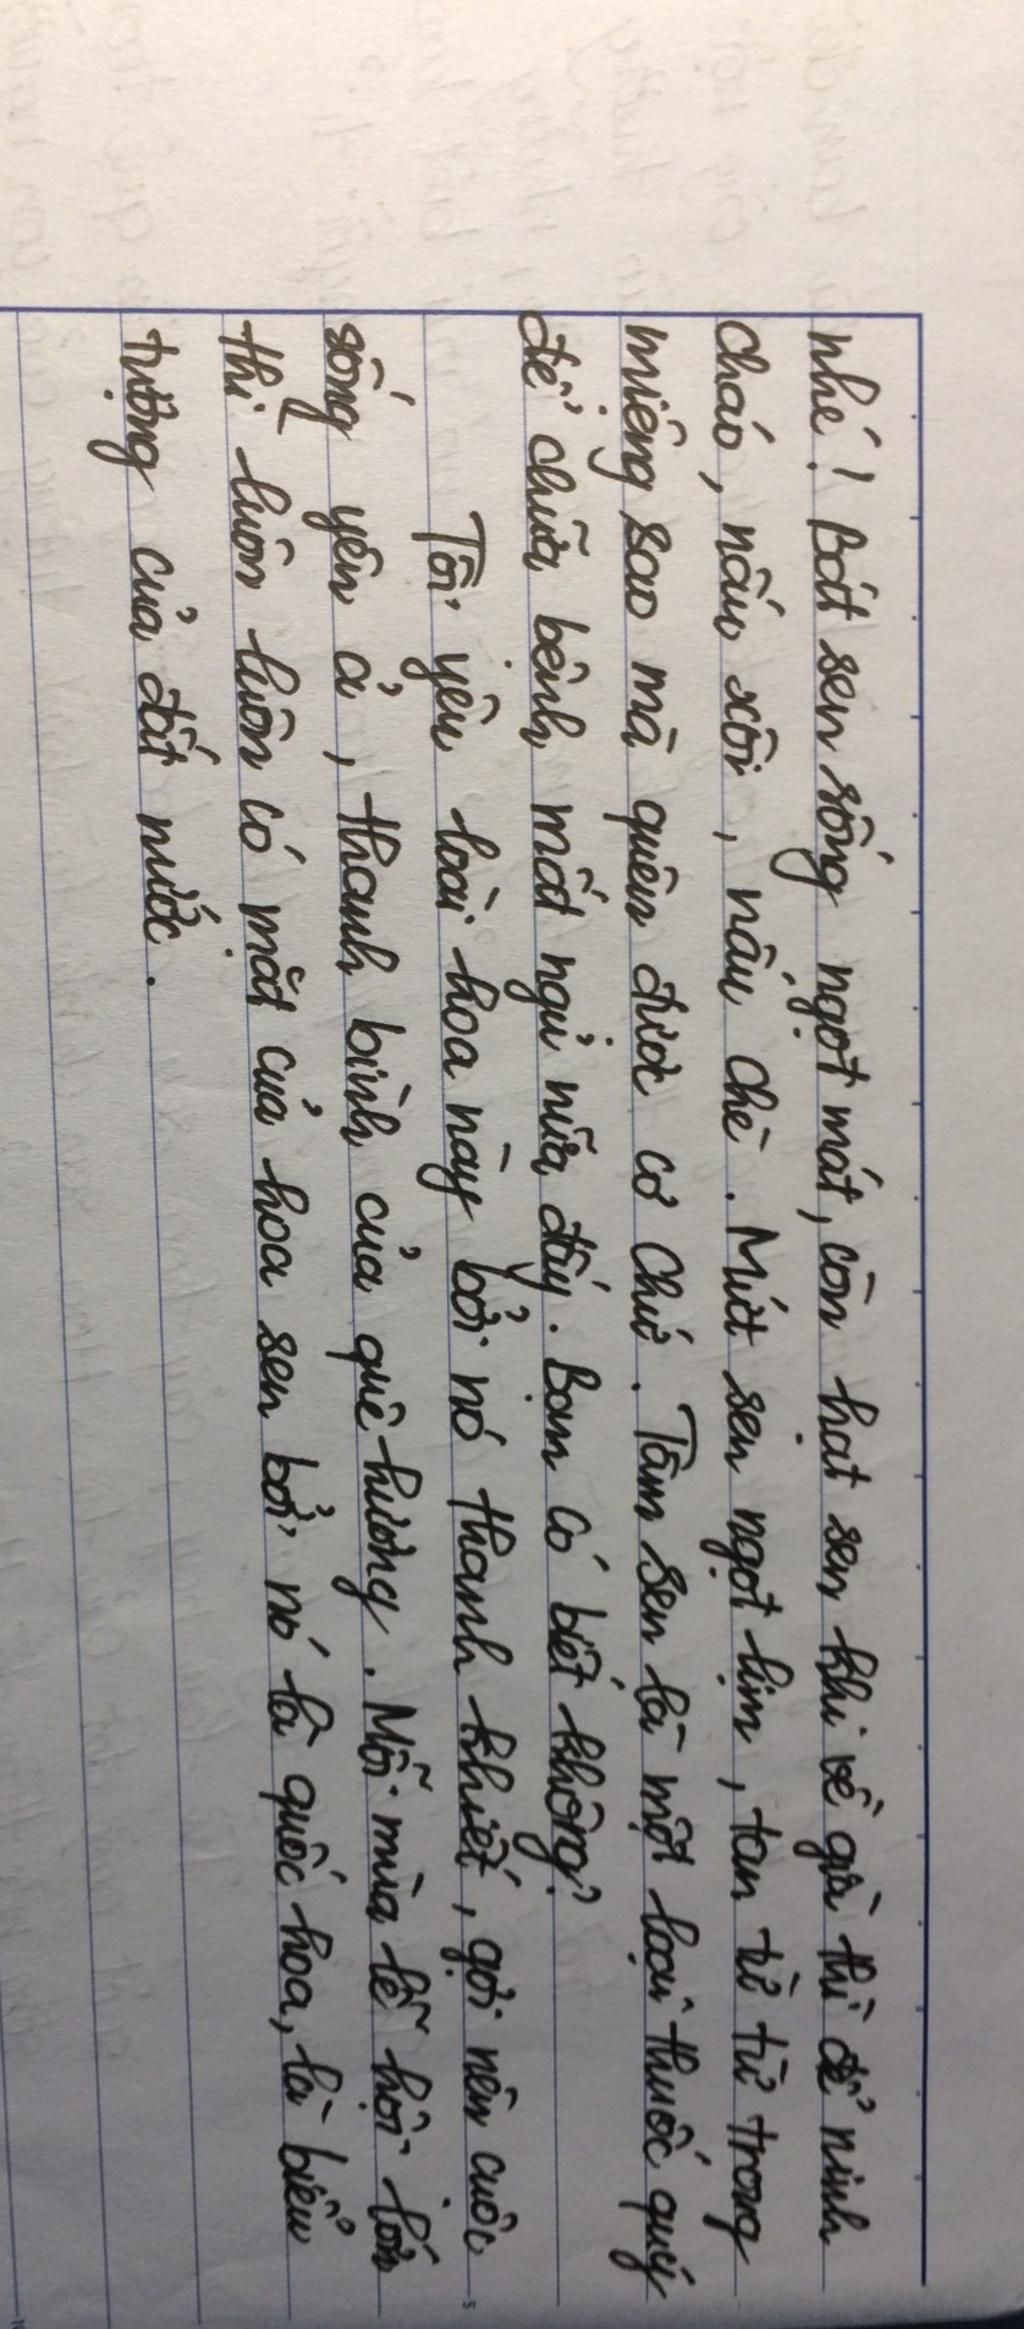 nhé! Bát sen sống ngọt mát, còn hạt sen khi về già thì để ninh
cháo, nấu xôi, nấu chè. Mứt sen ngọt lịm, tan từ từ trong
miệng sao mà quên được cơ chứ. Tâm sen là một loại thuốc quý
để chữa bệnh mất ngủ nữa đấy. Bạn có biết không?
Tôi yêu loài hoa này bởi nó thanh khiết, gợi nên cuộc
sống yên ả, thanh bình của quê hương. Mỗi mùa lễ hội lớn
thì luôn luôn có mặt của hoa sen bởi nó là quốc hoa, là biểu
tượng của đất nước.